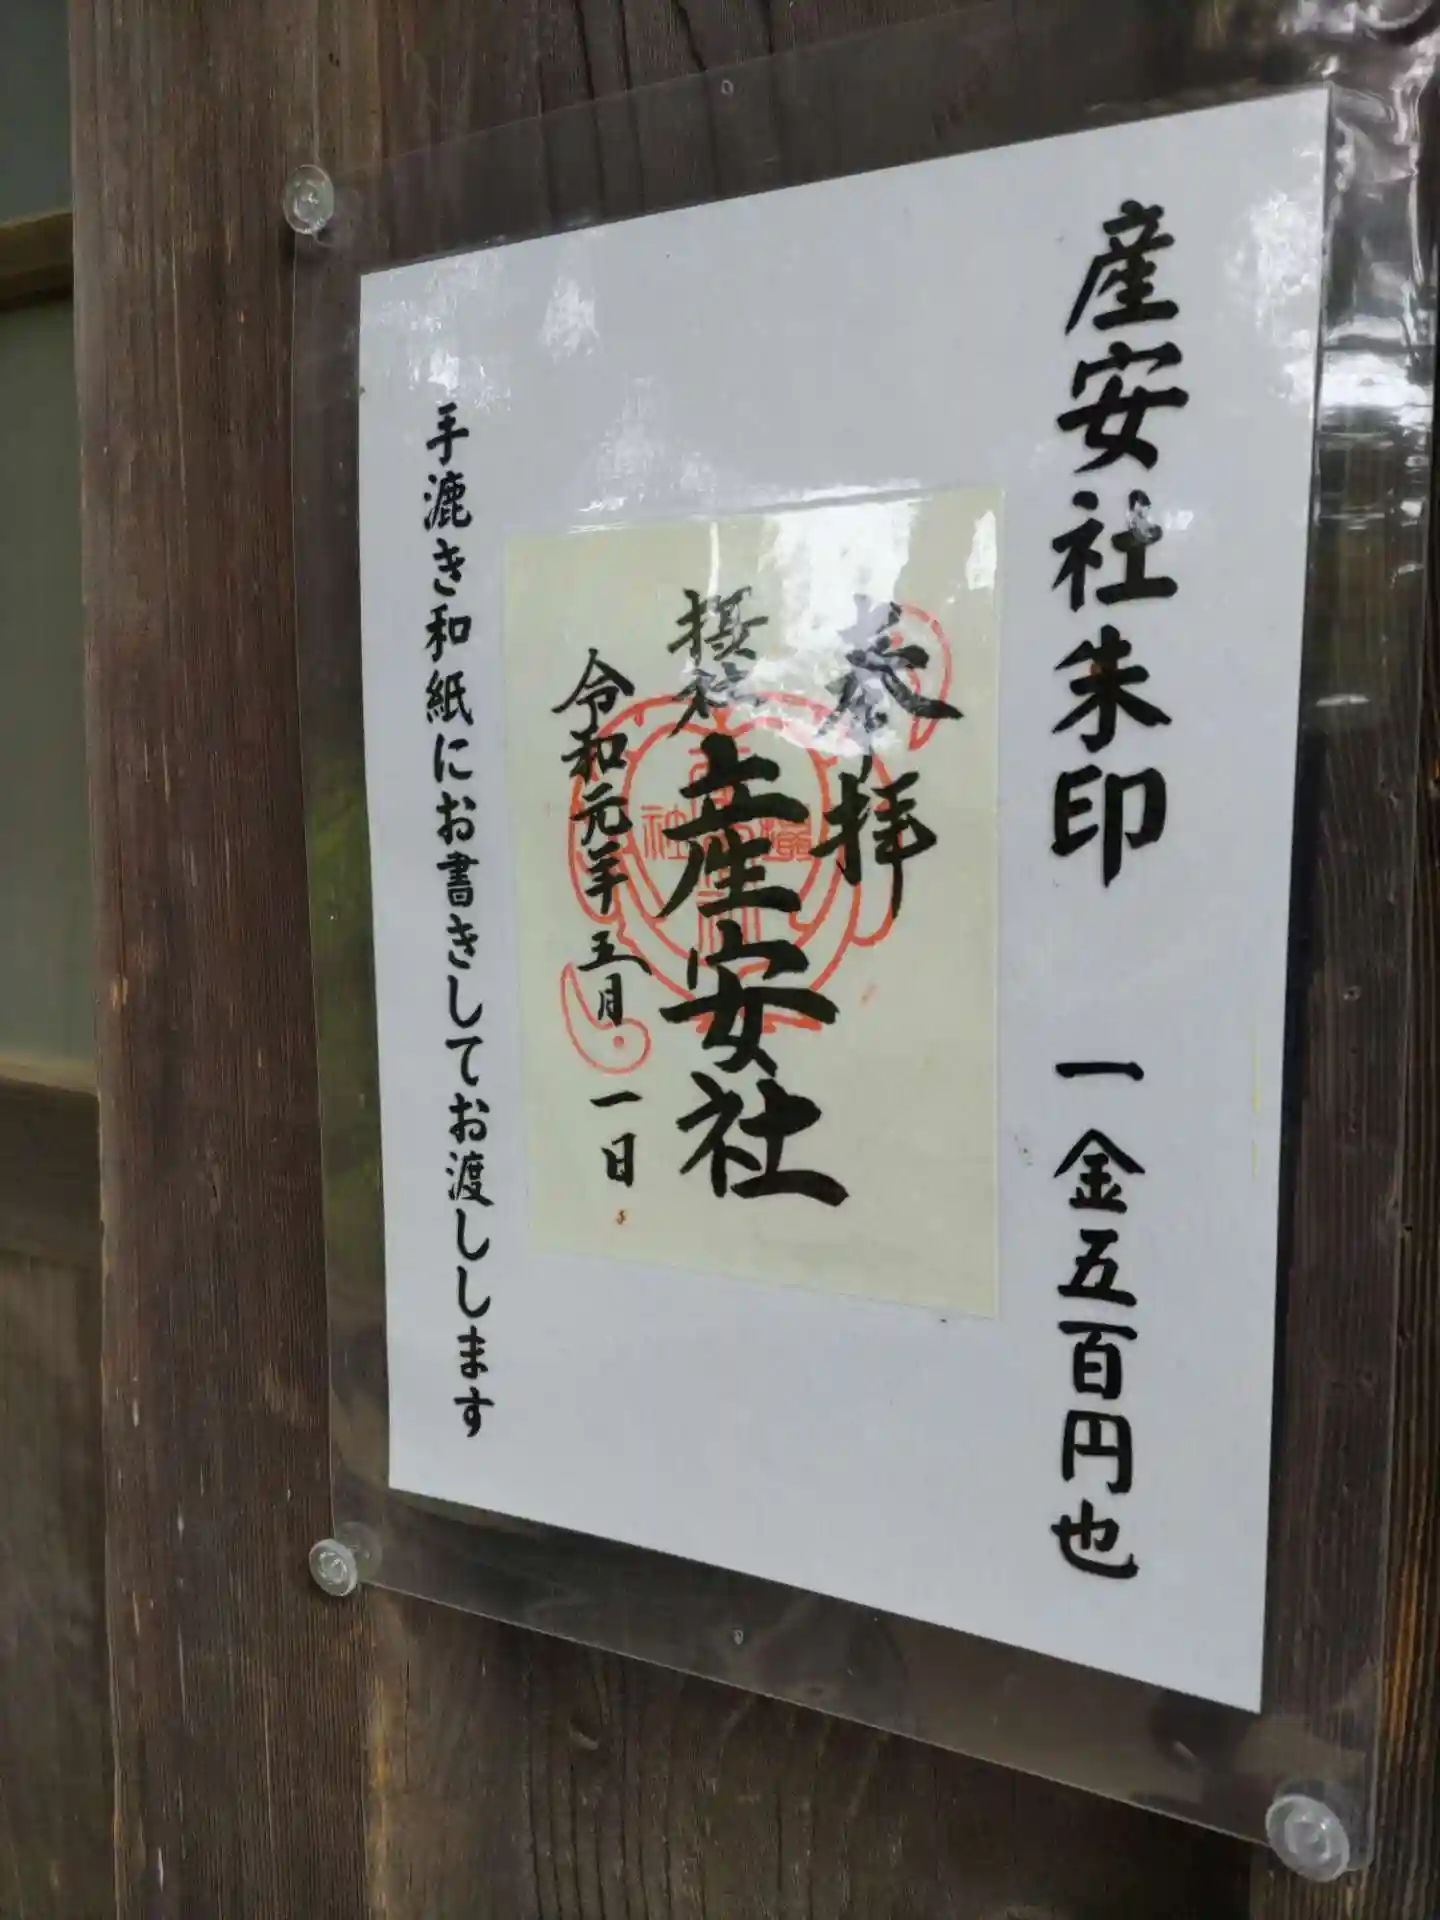 産安社朱印　一金五百円也
奉拝
摂社
産安社
令和元年五月一日
手漉き和紙にお書きしてお渡しします